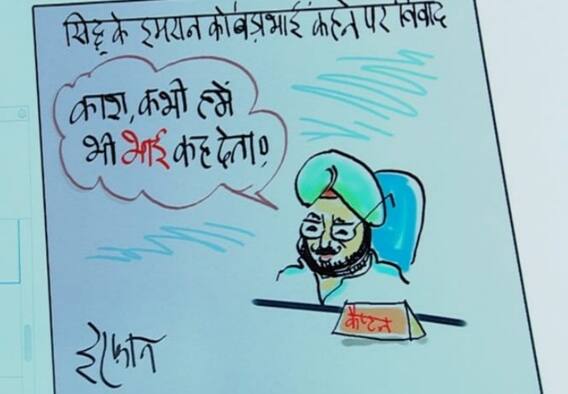 सिद्धू के इमरान को बड़ा भाई कहने पर विवाद
काश, कभी हमें
भी भाई कह देता!
कैप्टन
इरफान